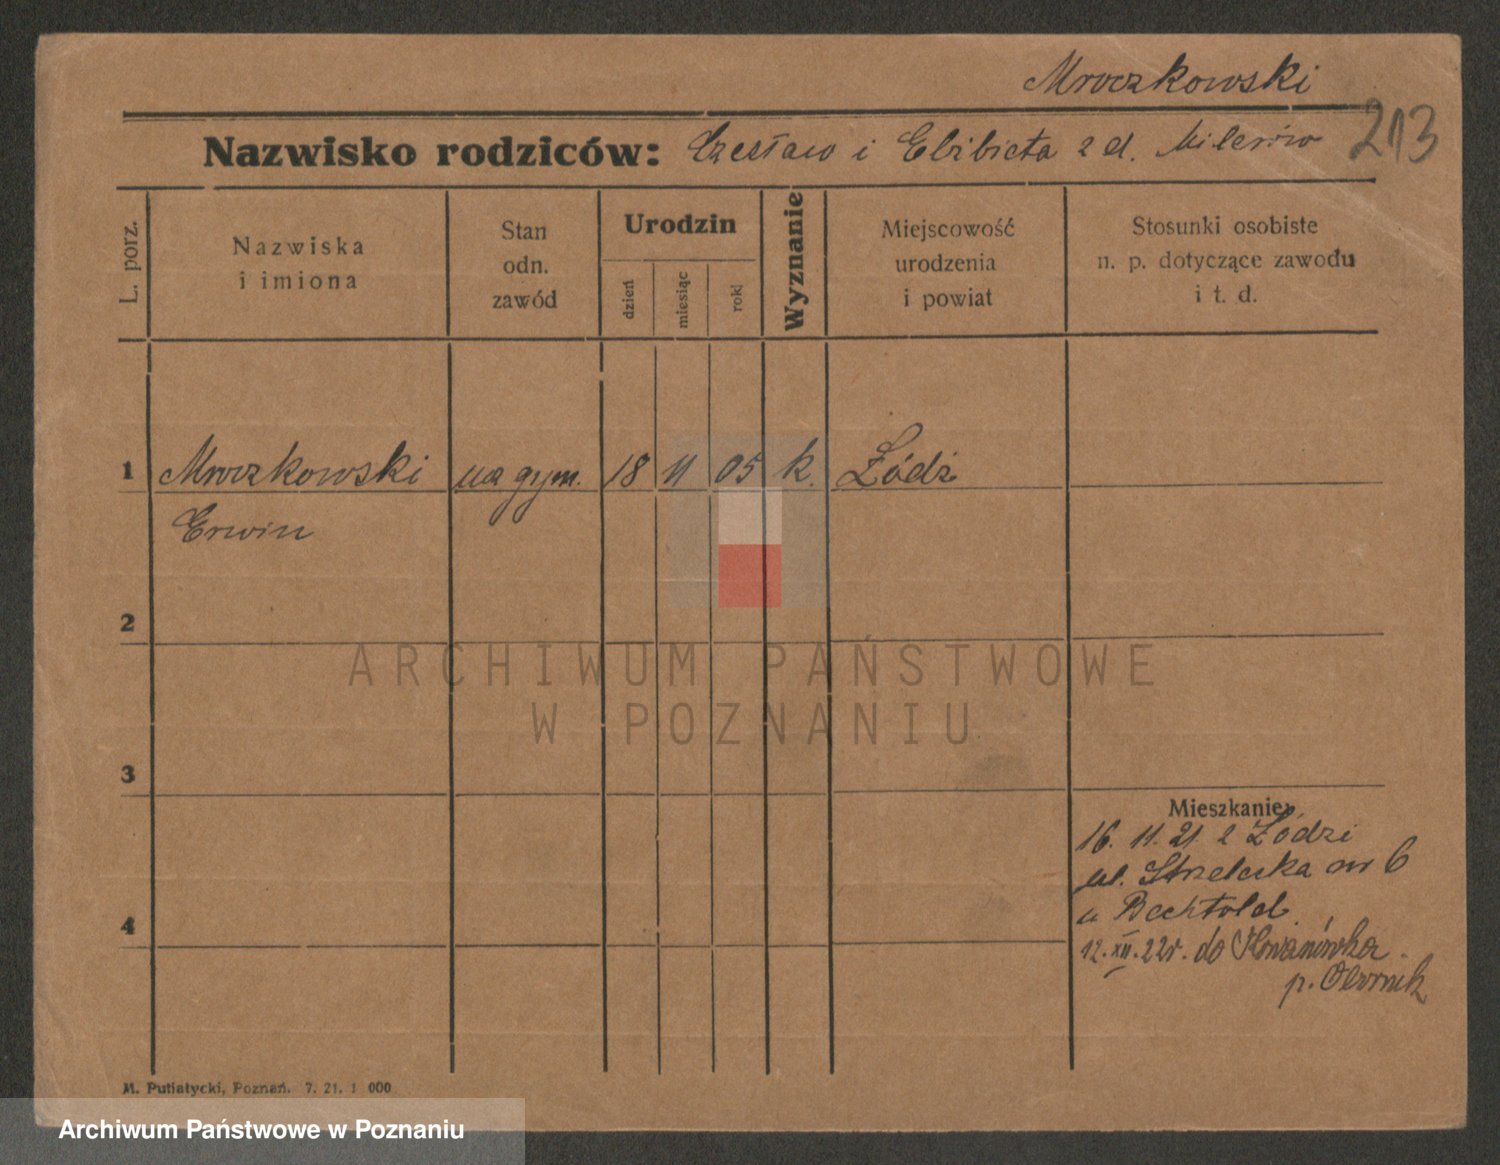 Mroczkowski
213
Nazwisko rodziców: Czesław i Elżbieta z d. Milerów
L. porz.
Nazwiska
i imiona
Stan
odn.
zawód
Urodzin
dzień
miesiąc
rok
Wyznanie
Miejscowość
urodzenia
i powiat
Stosunki osobiste
n. p. dotyczące zawodu
i t. d.
1 Mroczkowski ucz gym. 18 11 05 k. Łódź
Erwin
2
ARCHIWUM PAŃSTWOWE
W POZNANIU
3
Mieszkanie
16. 11. 21. z Łodzi
ul. Strzelecka nr 6
u Bechtold.
4
12. XII. 22 r. do Kowanówka.
p.
M. Putiatycki, Poznań. 7. 21. 1 000
Archiwum Państwowe w Poznaniu